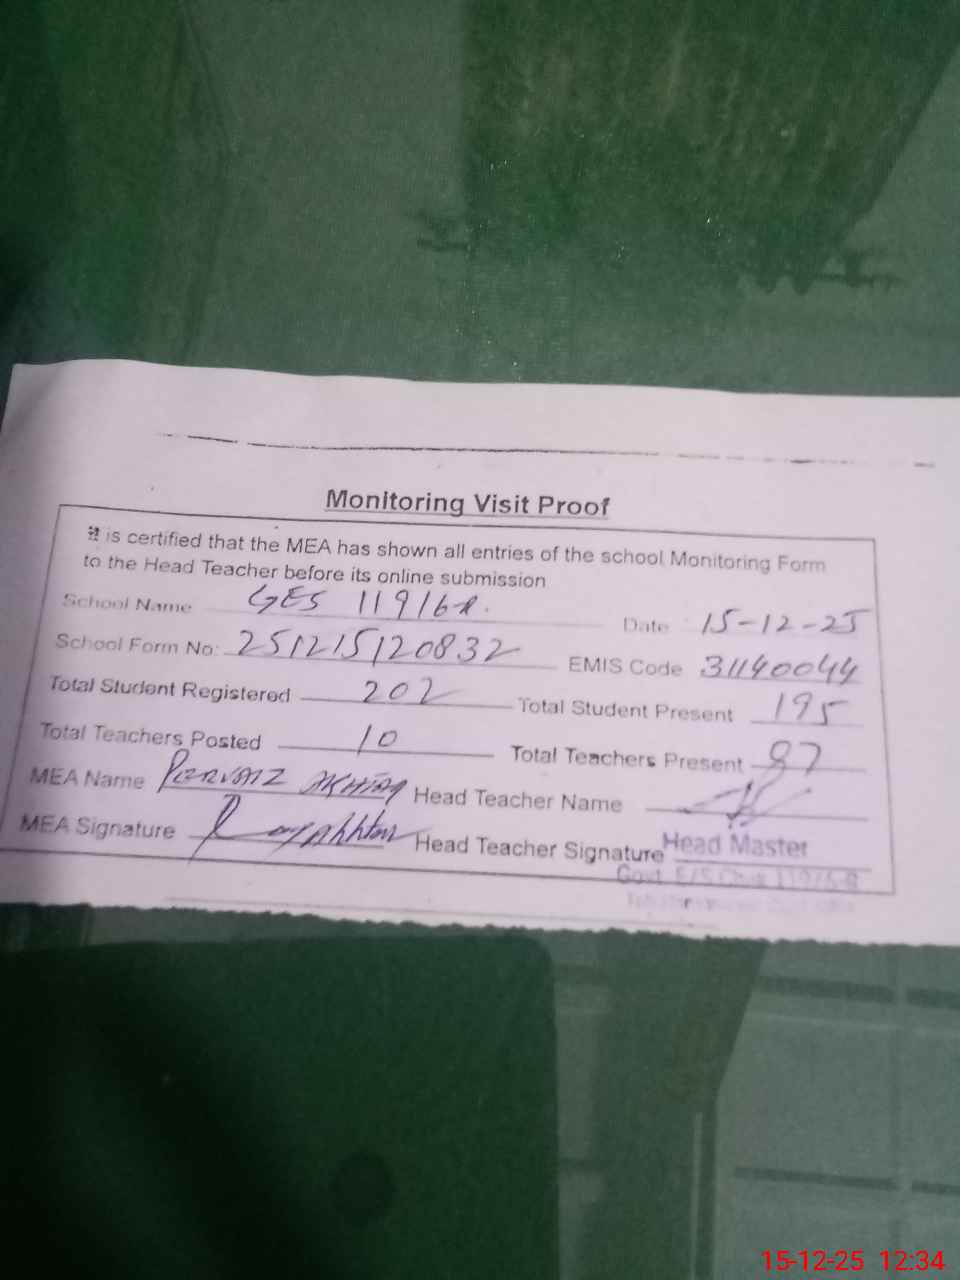 Monitoring Visit Proof
It is certified that the MEA has shown all entries of the school Monitoring Form
to the Head Teacher before its online submission
School Name GES 119/6R. Date 15-12-25
School Form No: 251215120832 EMIS Code 31140044
Total Student Registered 202 Total Student Present 195
Total Teachers Posted 10 Total Teachers Present
MEA Name PERVAIZ AKHTAR Head Teacher Name
MEA Signature Head Teacher Signature
Head Master
Govt. E/S Chak 119/6-R
15-12-25 12:34